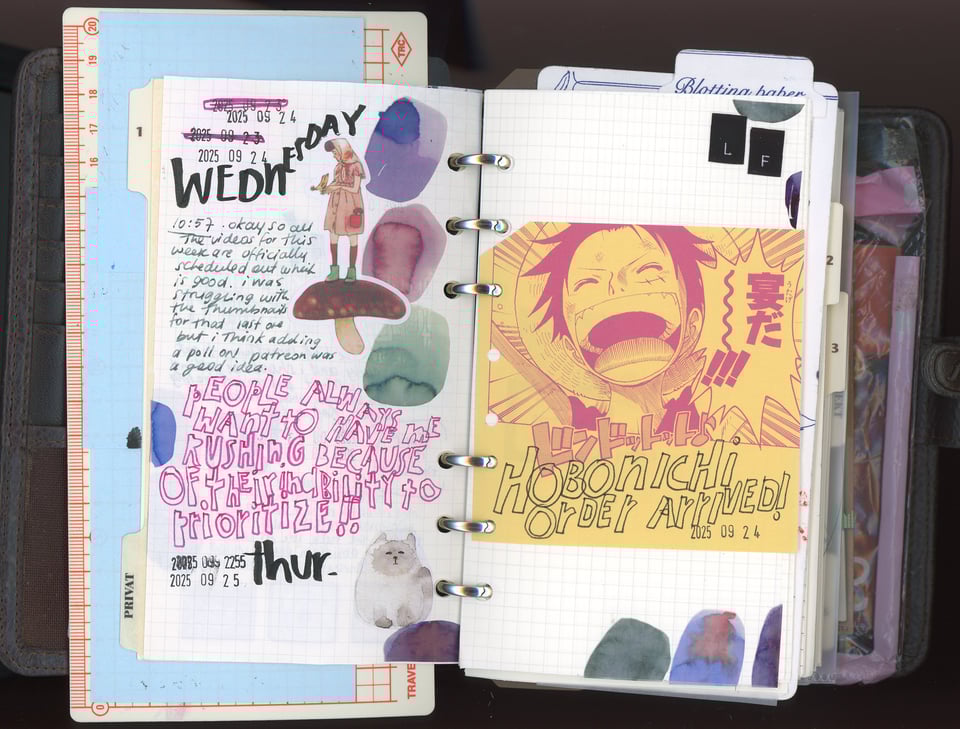 20
19
18
17
16
0
TRC
TRAVE
1
PRIVAT
2025 09 24
2025 09 23
2025 09 24
WEDNESDAY
10:57. okay so all
the videos for this
week are officially
scheduled out which
is good. i was
struggling with
the thumbnails
for that last one
but i think adding
a poll on patreon was
a good idea.
PEOPLE ALWAYS
WANT TO HAVE ME
RUSHING BECAUSE
OF their inABILITY to
PRIORITIZE!!
2025 09 25
thur.
Blotting paper
L F
宴だ
うたげ
!!!
ドンドットット♪
HOBONICHI
ORDER ARRIVED!
2025 09 24
2
3